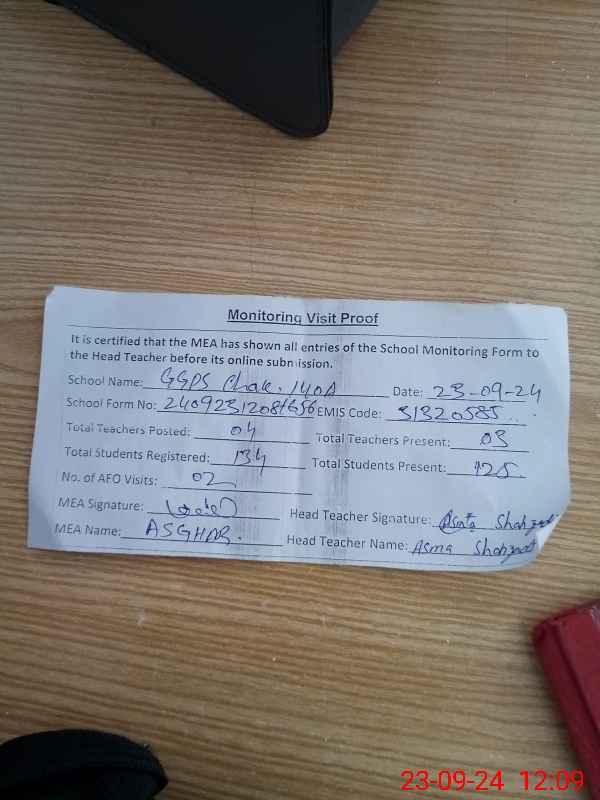 Monitoring Visit Proof
It is certified that the MEA has shown all entries of the School Monitoring Form to
the Head Teacher before its online submission.
School Name: GGPS Chak. 140A Date: 23-09-24
School Form No: EMIS Code: 31320585
Total Teachers Posted: 04 Total Teachers Present: 03
Total Students Registered: 134 Total Students Present: 125
No. of AFO Visits: 02
MEA Signature: Head Teacher Signature: Asma Shahzadi
MEA Name: ASGHAR. Head Teacher Name: Asma Shahzadi
23-09-24 12:09